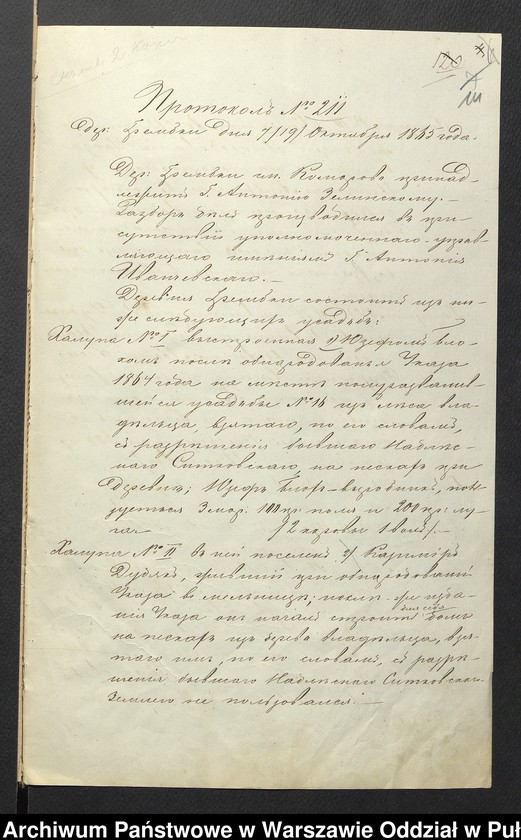 120
Протоколъ № 211
Дер: Гремвки Дня 7/19/ Октября 1865 года.
Дер: гм. Комарово принад-
лежитъ Г. Антонію Зелинскому.—
Разборъ дѣлъ производился въ при-
сутствіи уполномоченнаго управ-
ляющаго имѣніемъ Г Антонія
Ивашевскаго.—
Деревня состоитъ изъ ни-
же слѣдующихъ усадьбъ:
Халупа № I выстроенная 1) Юзефомъ Бло-
хомъ послѣ обнародованья Указа
1864 года на мѣстѣ полуразвалив-
шейся усадьбы № 16 изъ лѣса вла-
дѣльца, взятаго, по его словамъ,
съ разрѣшенія бывшаго Надлѣс-
наго Ситковскаго, на пескахъ при
Деревнѣ; Юзефъ Блохъ выгодникъ, поль-
зуется 3 мор. 100 пр: поля и 200 пр: лу-
га / 2 коровы 1 волъ /.—
Халупа № II въ ней поселенъ 2) Казиміръ
Дудякъ, жившій при обнародованіи
Указа въ мельницѣ; послѣ же изда-
нія Указа онъ началъ строить для себя домъ
на пескахъ изъ дерева владѣльца, взя-
таго имъ, по его словамъ, съ разрѣ-
шенія бывшаго Надлѣснаго Ситковскаго.
Землею не пользовался.—
Archiwum Państwowe w Warszawie Oddział w Puł